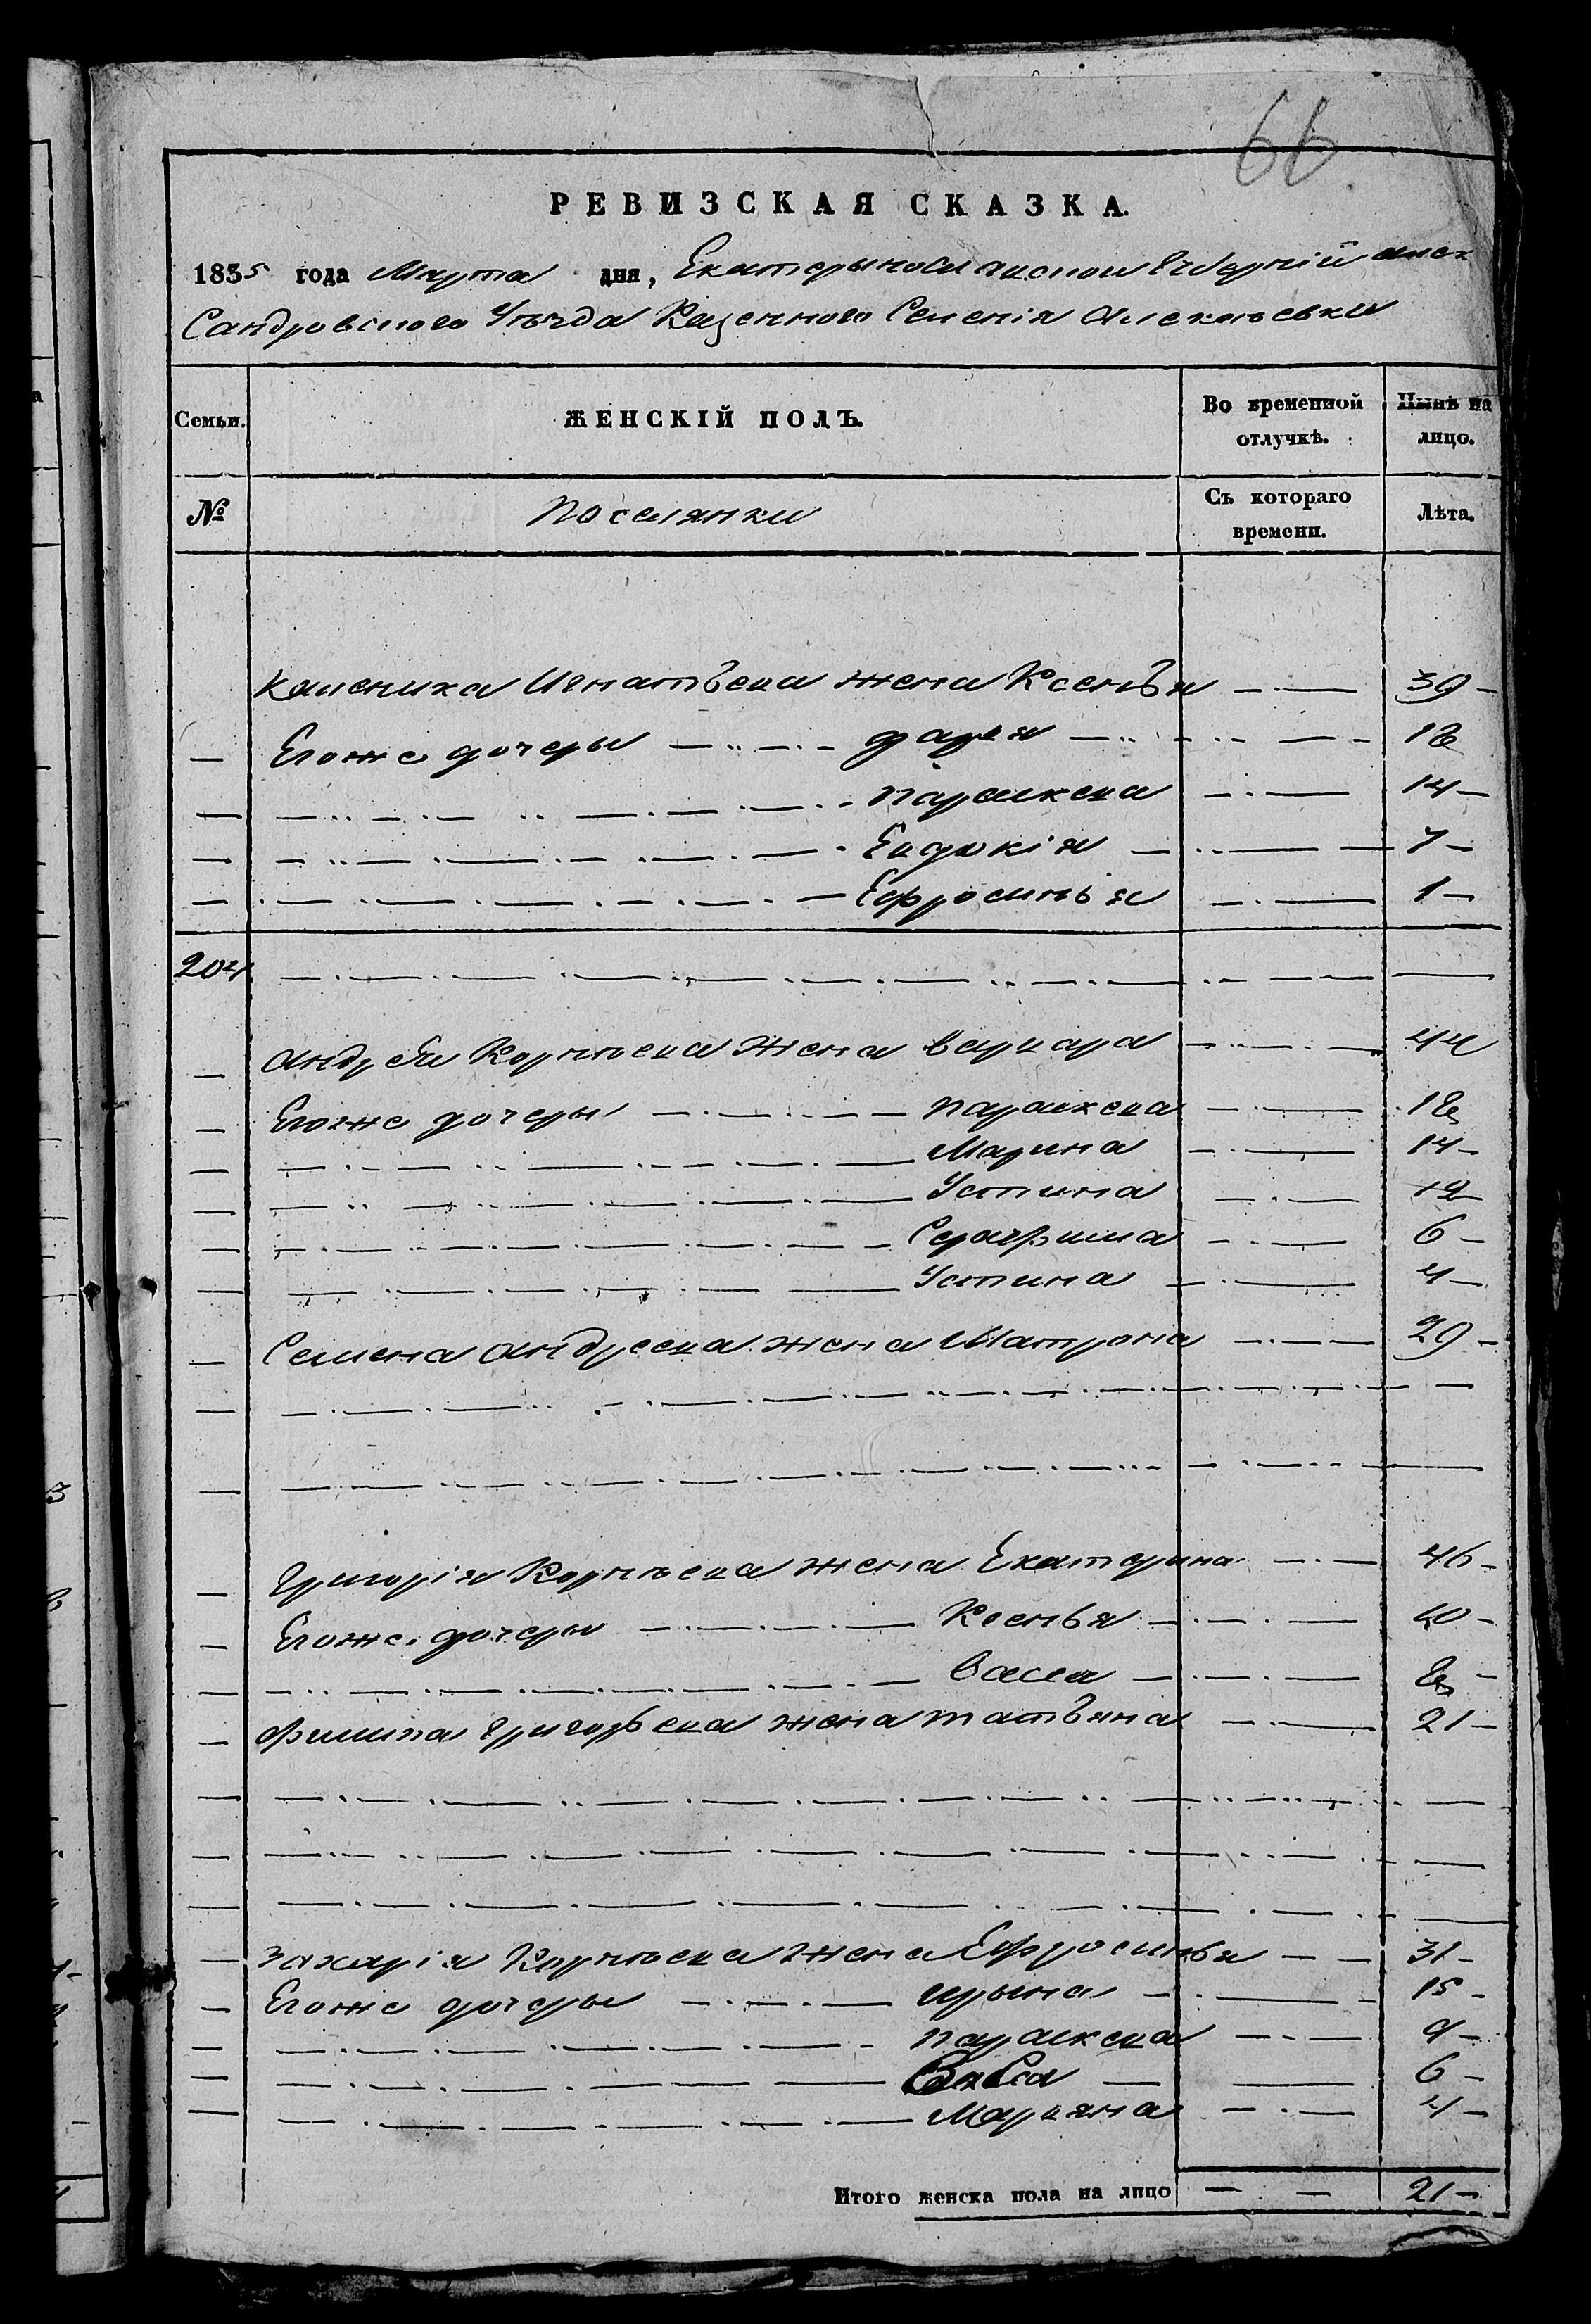 66
РЕВИЗСКАЯ СКАЗКА.
1835 года Марта дня, Екатеринославской Губерніи Алек
Сандровского Уѣзда Казенного Селенія Алексѣевки
Семьи. ЖЕНСКІЙ ПОЛЪ. Во временной отлучкѣ. Нынѣ на лицо.
№ поселянки Съ котораго времени. Лѣта.
Калсника Игнатьева жена Ксенья 39
Егоже дочеры дарья 18
параскева 14
Евдокія 7
Ефросинья 1
204
Андрея Корнѣева жена Варвара 44
Егоже дочеры параскева 18
Марина 14
Устина 12
Серафима 6
Устина 4
Семена Андреева жена Матрона 29
Григорія Корнѣева жена Екатерина 46
Егоже дочеры Ксенья 10
Васса 8
Филипа Григорьева жена татьяна 21
Захарія Корнѣева жена Ефросинья 31
Егоже дочеры ирына 15
параскева 9
Васса 6
Марьяна 4
Итого женска пола на лицо 21